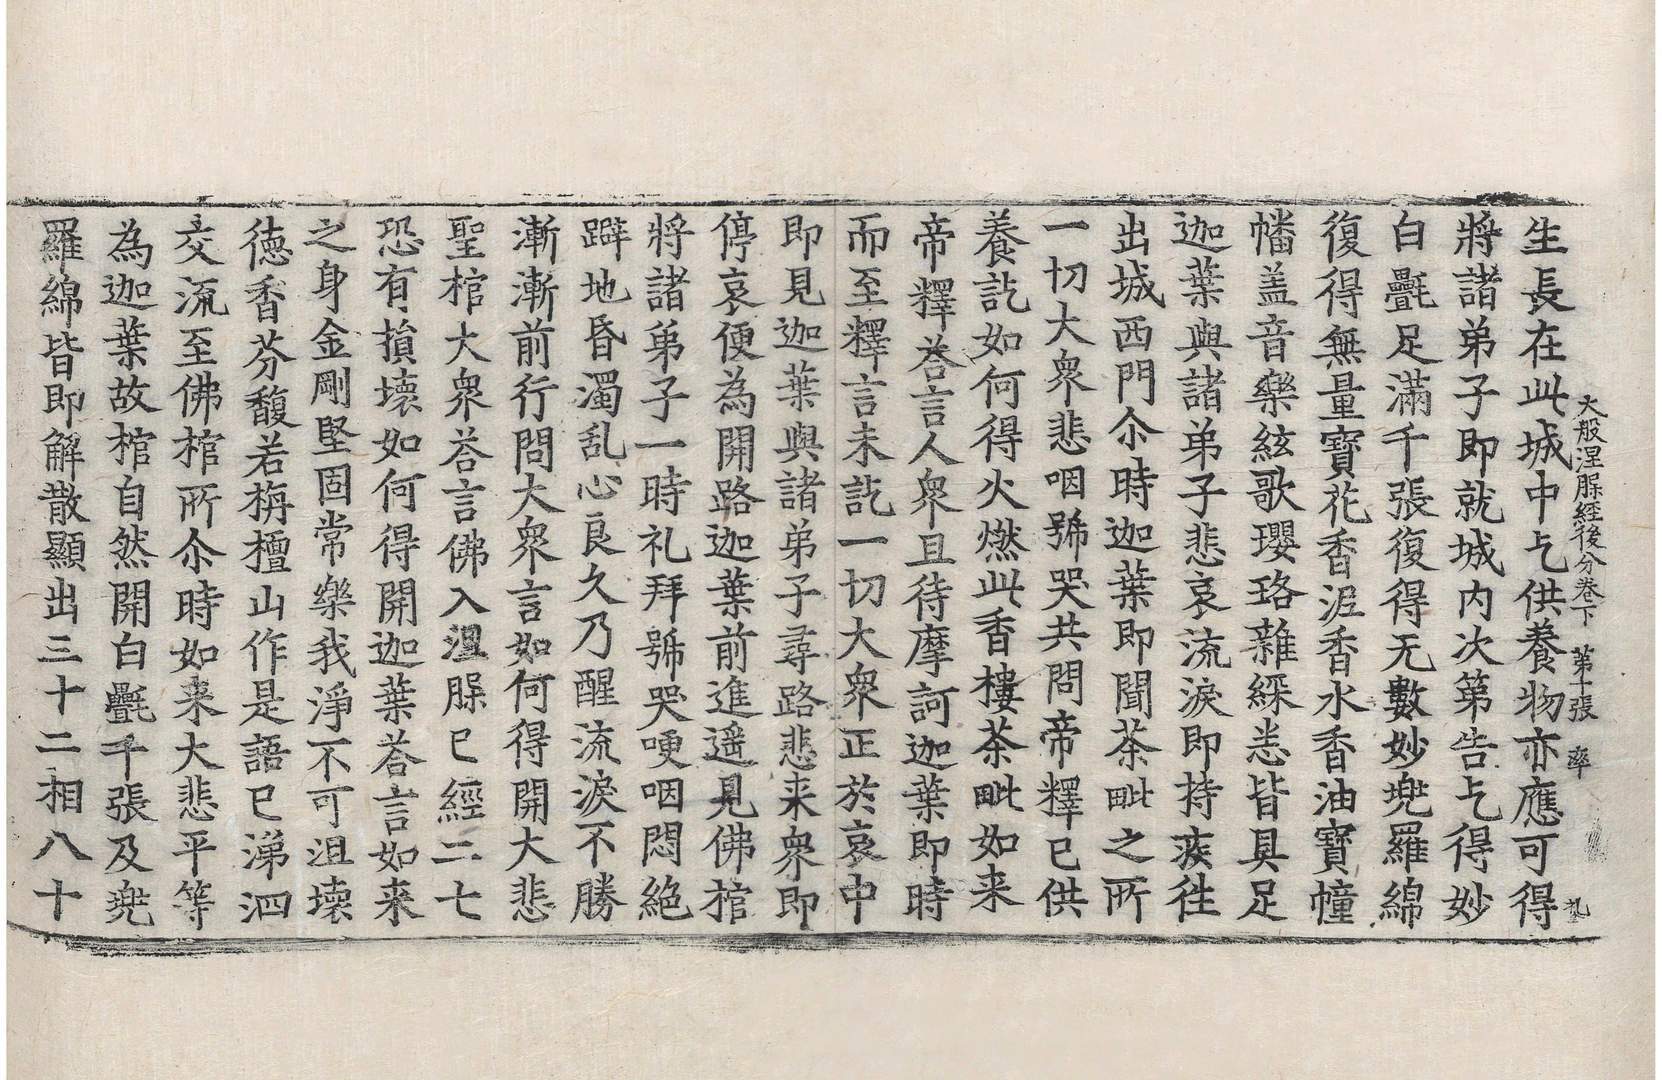 大般涅脲經後分卷下 第十張 率
礼
生長在此城中乞供養物亦應可得
將諸弟子即就城内次第告乞得妙
白㲲足滿千張復得无數妙兠羅綿
復得無量寶花香泥香水香油寶幢
幡盖音樂絃歌瓔珞雜綵悉皆具足
迦葉與諸弟子悲哀流淚即持疾往
出城西門尒時迦葉即聞茶毗之所
一切大衆悲咽號哭共問帝釋已供
養訖如何得火燃此香樓茶毗如来
帝釋荅言人衆且待摩訶迦葉即時
而至釋言未訖一切大衆正於哀中
即見迦葉與諸弟子尋路悲来衆即
停哀便為開路迦葉前進遥見佛棺
將諸弟子一時礼拜號哭哽咽悶絶
躃地昏濁乱心良久乃醒流淚不勝
漸漸前行問大衆言如何得開大悲
聖棺大衆荅言佛入涅脲已經二七
恐有損壞如何得開迦葉荅言如来
之身金剛堅固常樂我淨不可沮壞
德香芬馥若栴檀山作是語已涕泗
交流至佛棺所尒時如来大悲平等
為迦葉故棺自然開白㲲千張及兠
羅綿皆即解散顯出三十二相八十